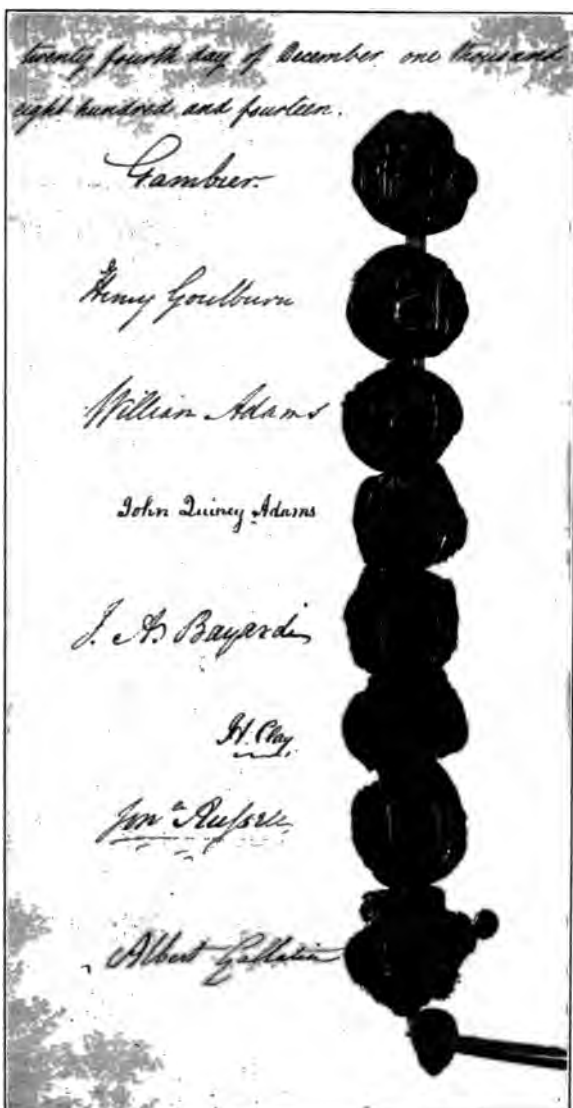 twenty fourth day of December one thousand
eight hundred and fourteen.
Gambier.
Henry Goulburn
William Adams
John Quincy Adams
J. A. Bayard
H. Clay.
Jon.a Russell
Albert Gallatin